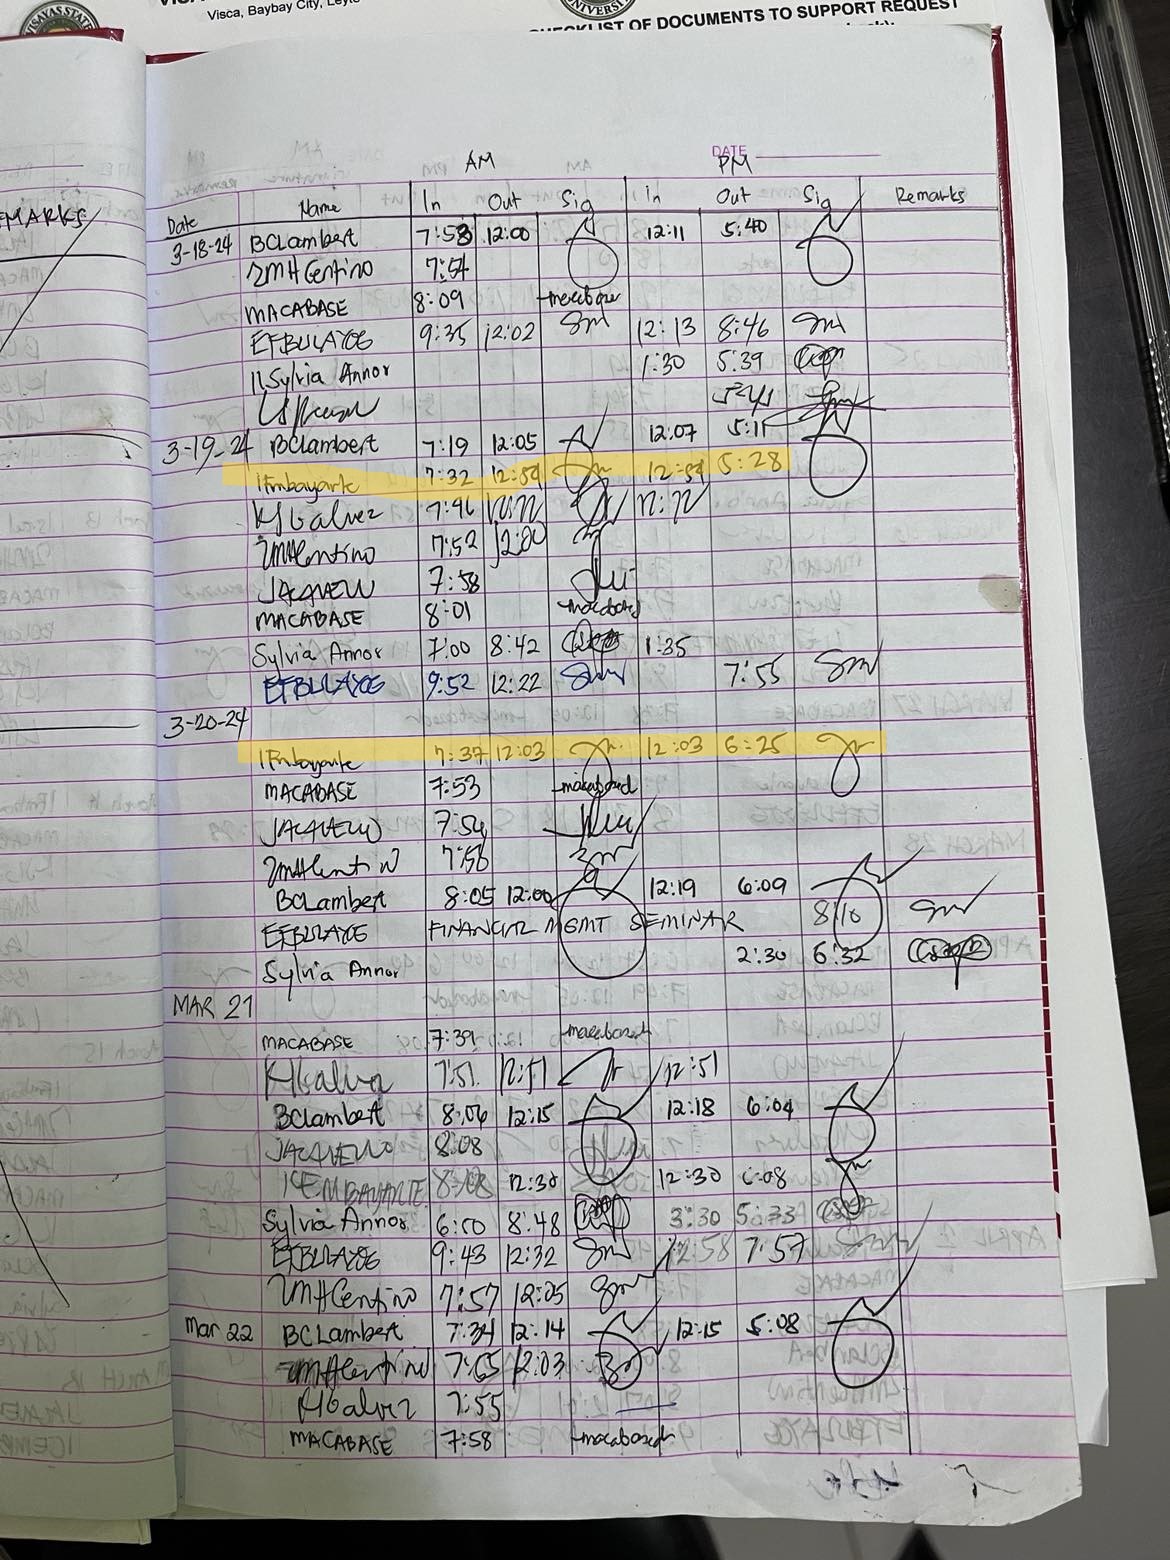 Visca, Baybay City, Leyte
UNIVERSITY
CHECKLIST OF DOCUMENTS TO SUPPORT REQUEST
DATE
AM PM
Date Name In Out Sig In Out Sig Remarks
MARKS
3-18-24 BCLambert 7:53 12:00 12:11 5:40
ZMHCentino 7:54
MACABASE 8:09 macabase
EFBULAYOG 9:35 12:02 12:13 8:46
Sylvia Annor 1:30 5:39
3-19-24 BCLambert 7:19 12:05 12:07 5:11
7:32 12:59 12:59 5:28
KHGalvez 7:46
ZMHCentino 7:52 12:00
7:58
MACABASE 8:01
Sylvia Annor 7:00 8:42 1:35
EFBULAYOG 9:52 12:22 7:55
3-20-24
7:37 12:03 12:03 6:25
MACABASE 7:53
7:54
ZMHCentino 7:56
BCLambert 8:05 12:00 12:19 6:09
EFBULAYOG FINANCIAL MGMT SEMINAR 8:10
Sylvia Annor 2:30 6:32
MAR 21
MACABASE 7:39
KHGalvez 7:51 12:51 12:51
BCLambert 8:06 12:15 12:18 6:04
8:08
12:30 12:30 6:08
Sylvia Annor 6:50 8:48 3:30 5:33
EFBULAYOG 9:43 12:32 12:58 7:57
ZMHCentino 7:57 12:05
Mar 22 BCLambert 7:34 12:14 12:15 5:08
ZMHCentino 12:03
KHGalvez 7:55
MACABASE 7:58